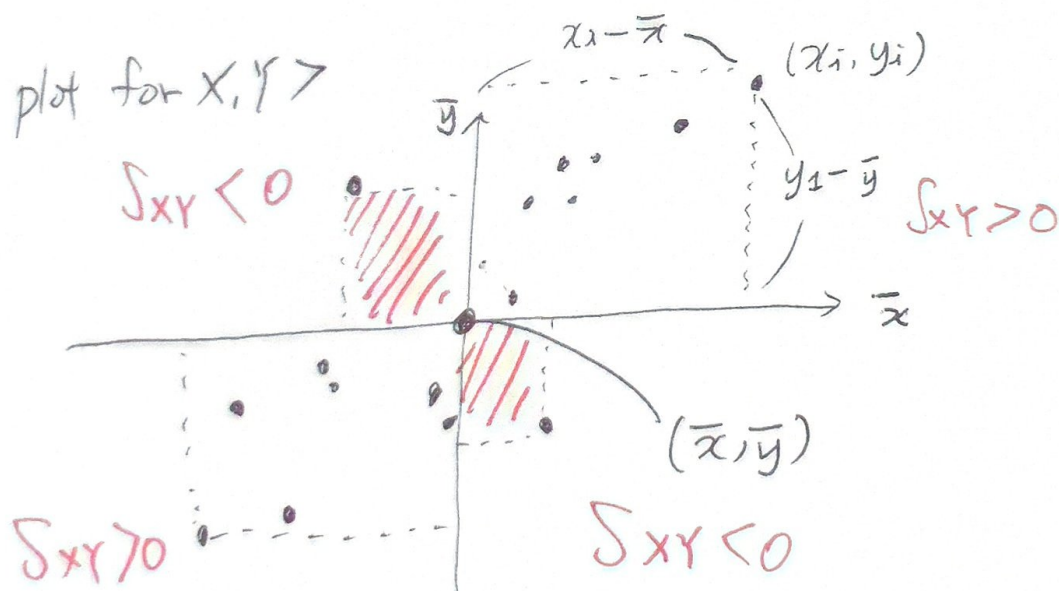 plot for X, Y >
x₁ − x̅
(xᵢ, yᵢ)
y̅
Sxy < 0
y₁ − y̅
Sxy > 0
x̅
(x̅, y̅)
Sxy > 0
Sxy < 0